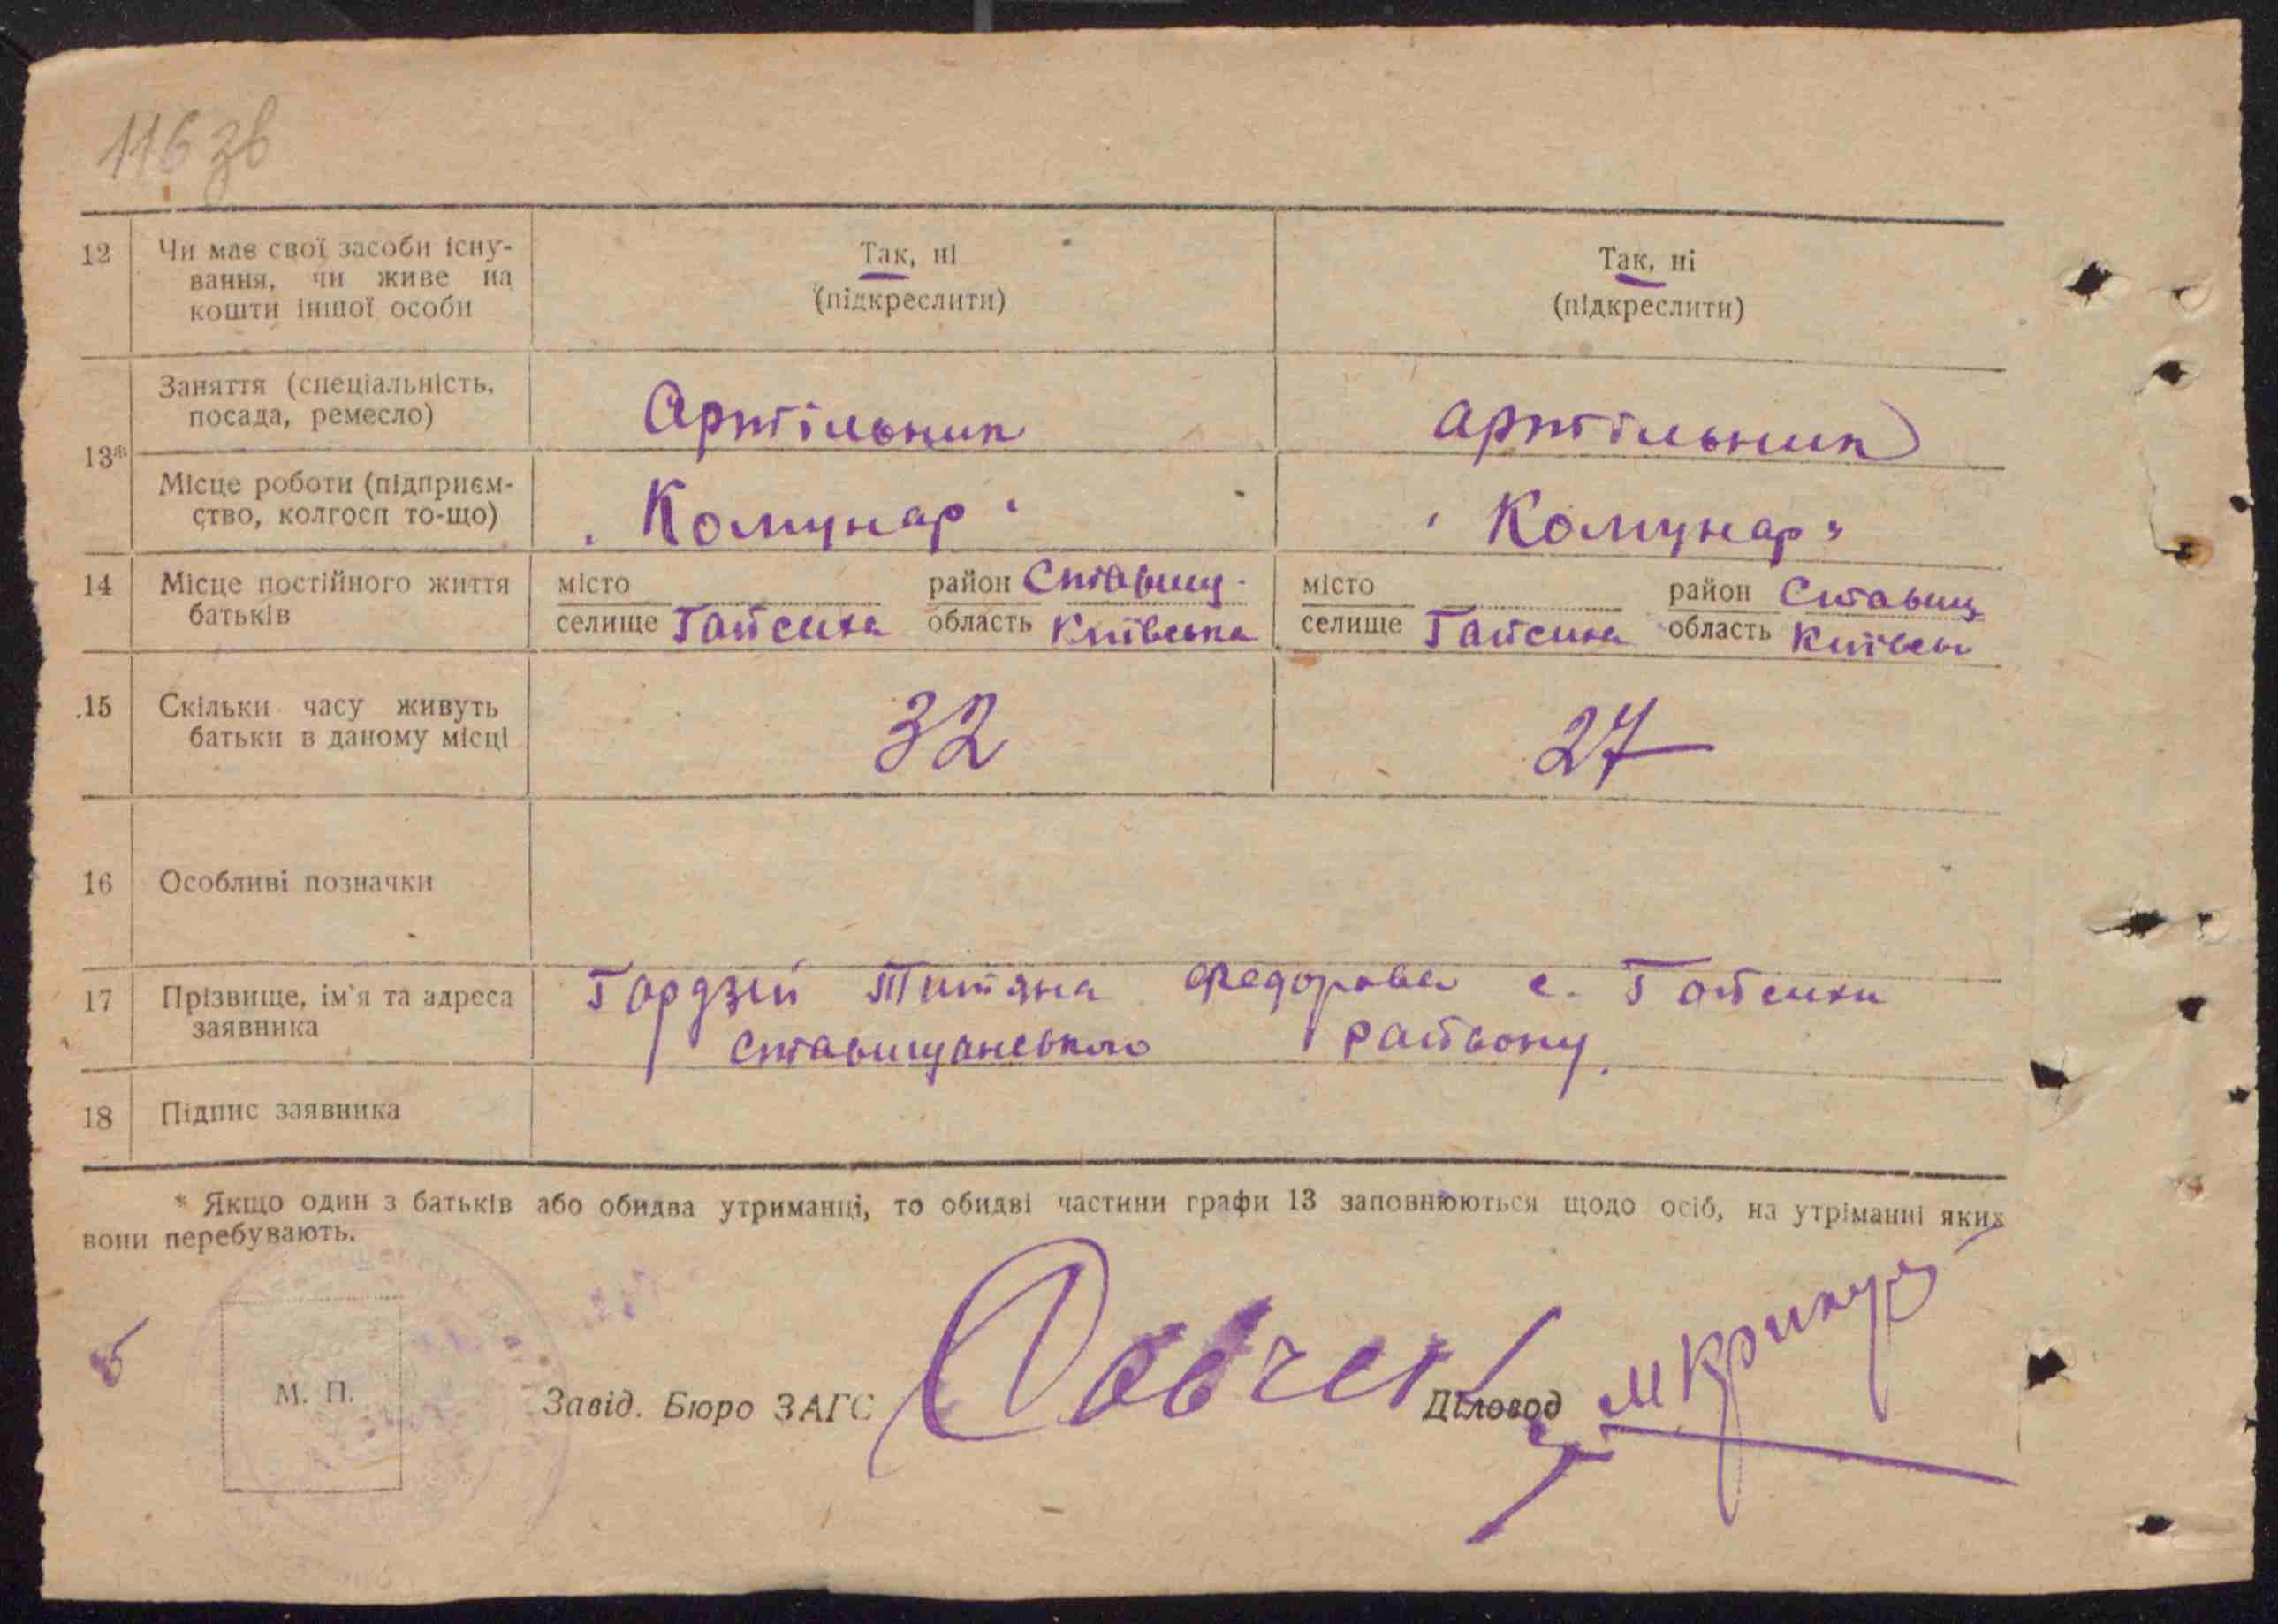 116 зв
12 Чи має свої засоби існу- Так, ні Так, ні
вання, чи живе на (підкреслити) (підкреслити)
кошти іншої особи
Заняття (спеціальність, Артільник артільник
посада, ремесло)
13*
Місце роботи (підприєм- „Комунар" „Комунар"
ство, колгосп то-що)
14 Місце постійного життя місто район Ставищ. місто район Ставищ
батьків селище Гайсиха область Київська селище Гайсиха область Київськ
15 Скільки часу живуть 32 27
батьки в даному місці
16 Особливі позначки
17 Прізвище, ім'я та адреса Гордзій Титяна Федорова с. Гайсихи
заявника Ставищанського райвону.
18 Підпис заявника
* Якщо один з батьків або обидва утриманці, то обидві частини графи 13 заповнюються щодо осіб, на утріманні яких
вони перебувають.
М. П.
Завід. Бюро ЗАГС Діловод